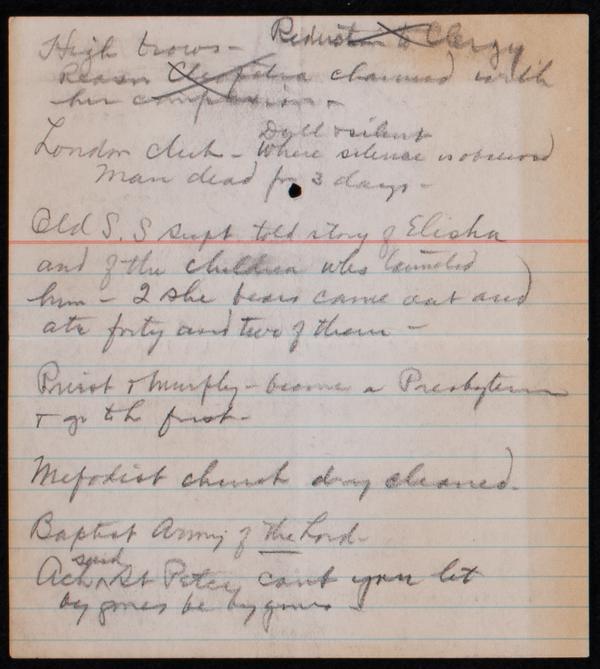 High brows - Reduction to Clergy
Reason Cleopatra charmed with
her complexion -
Dull & silent
London club - Where silence is observed
Man dead for 3 days -
Old S. S supt told story of Elisha
and of the children who taunted
him - 2 she bears came out and
ate forty and two of them -
Priest & Murphy - become a Presbyterian
& go to h first -
Mefodist church dry cleaned.
Baptist Army of the Lord -
said
Ach St Peter cant you let
by gones be by gones -